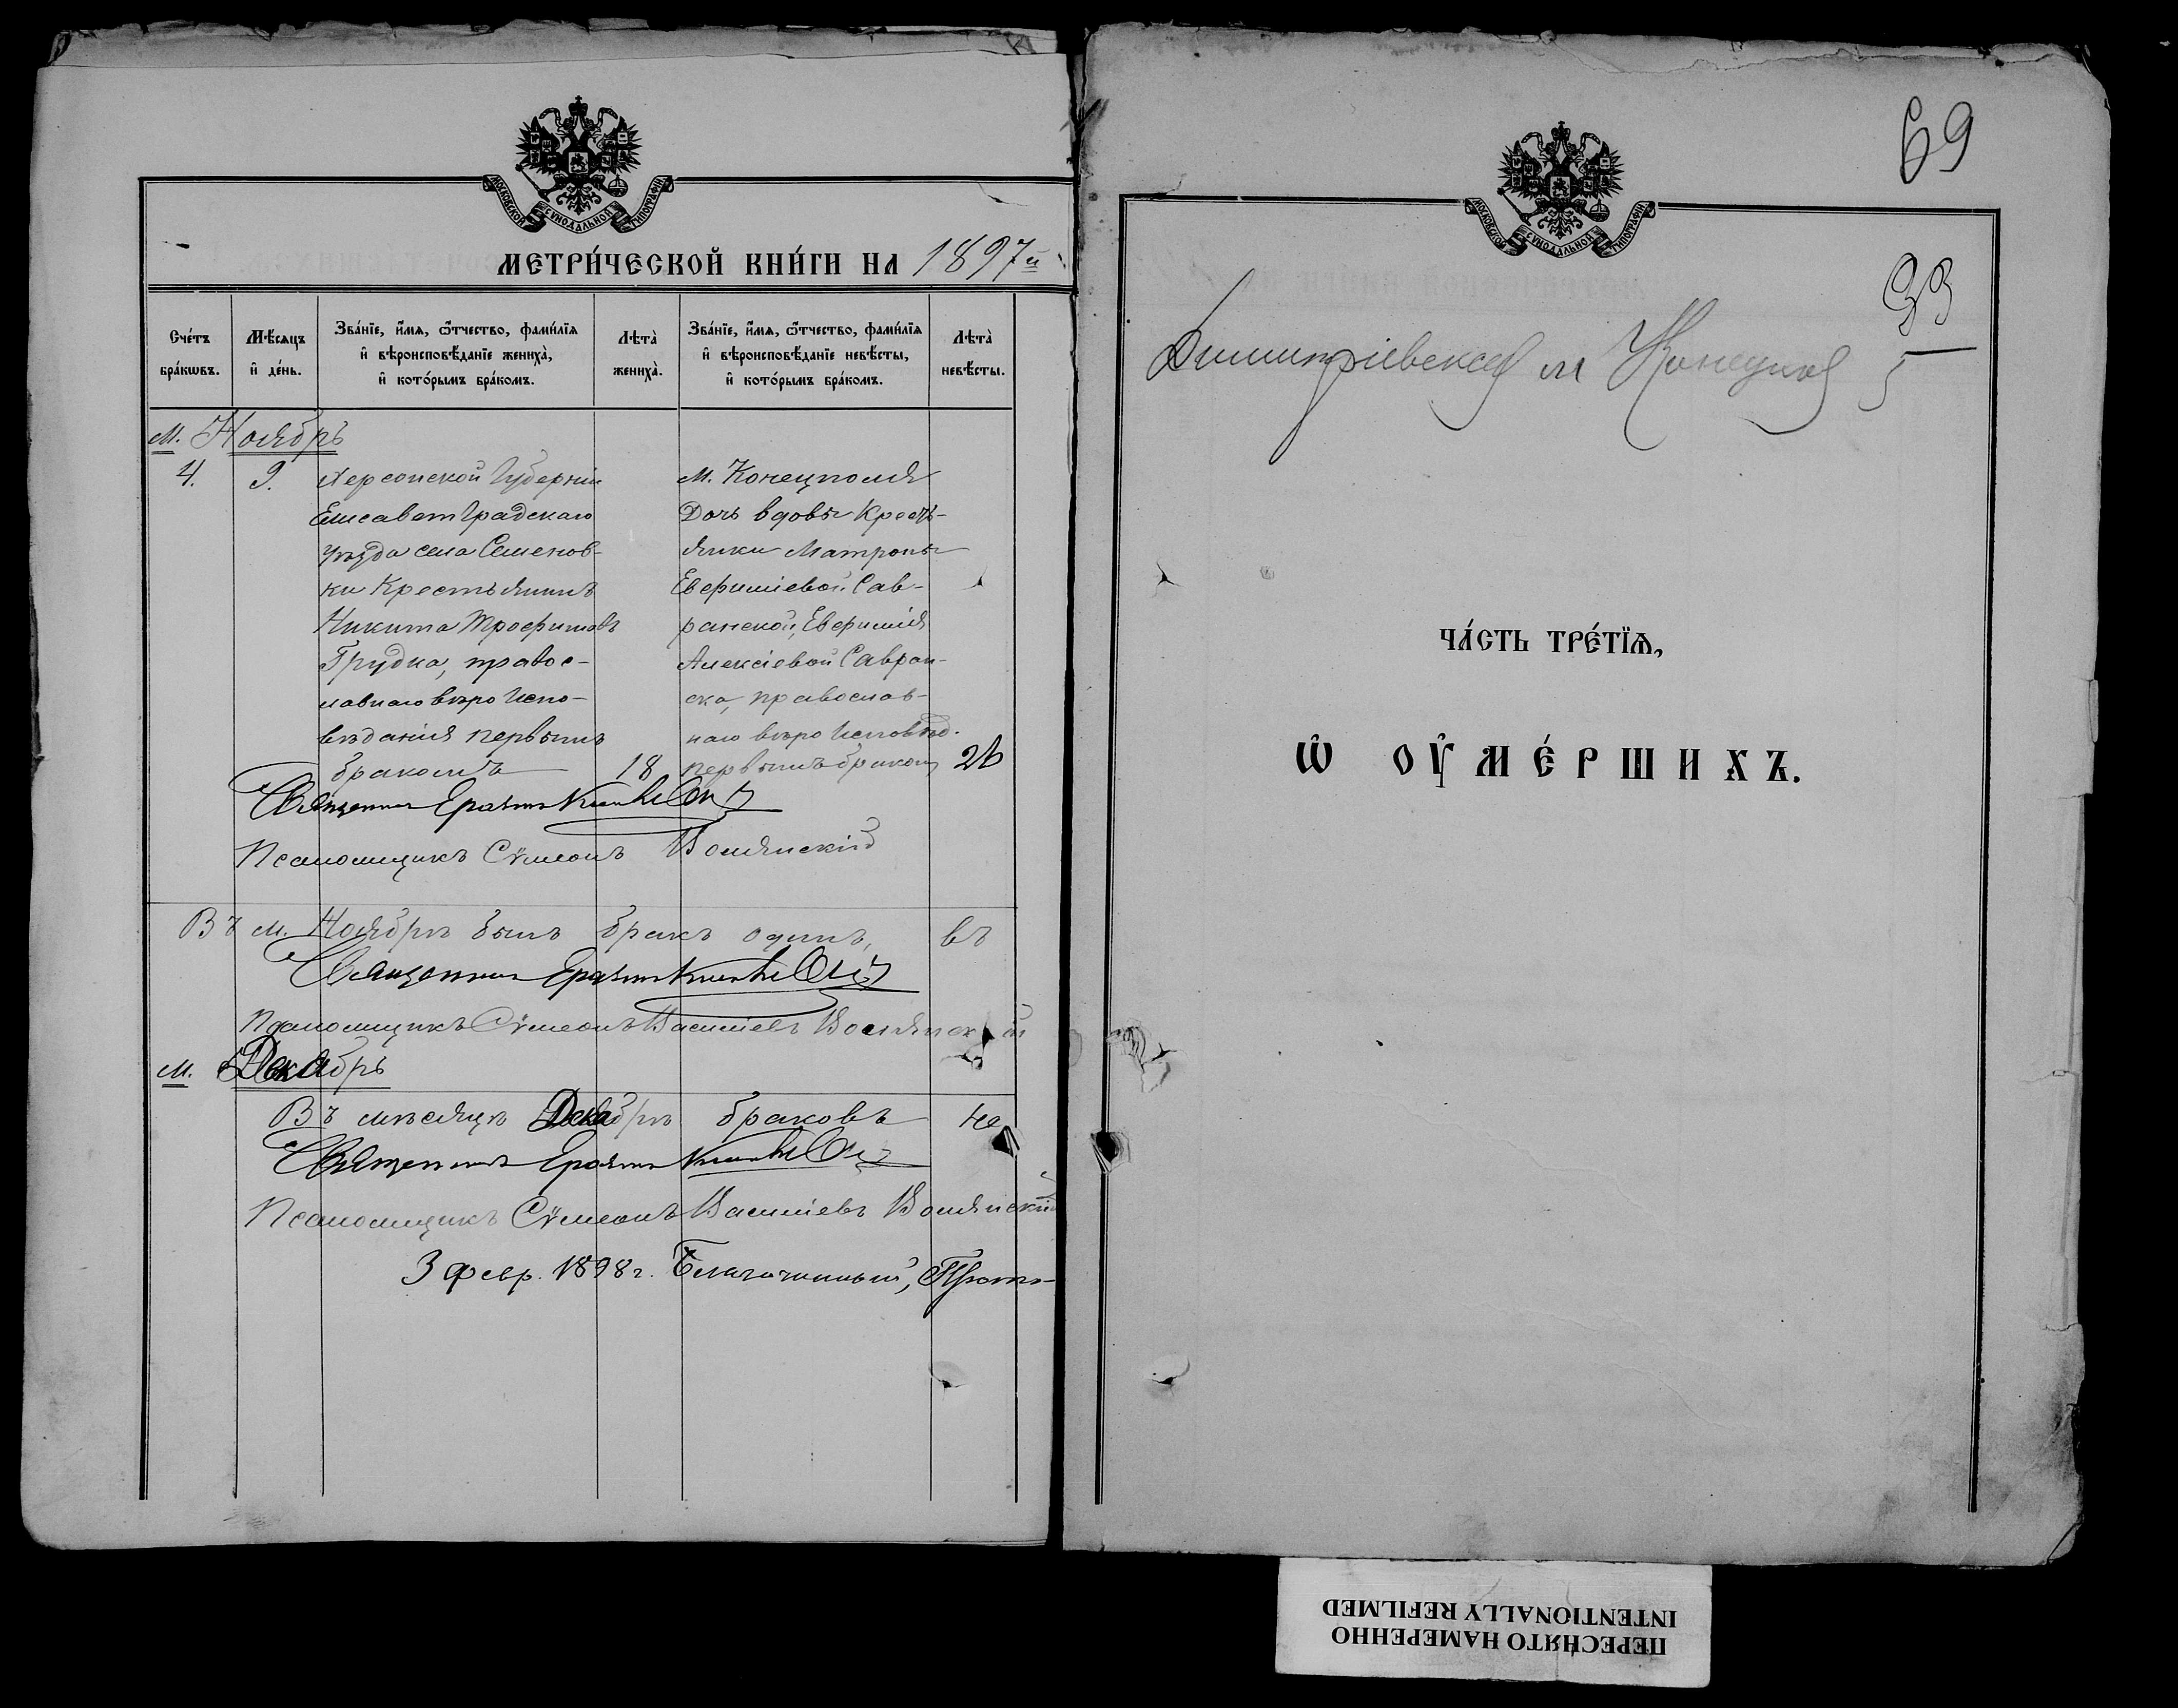 МОСКОВСКОЙ СѴНОДАЛЬНОЙ ТИПОГРАФІИ
МЕТРИ́ЧЕСКОЙ КНИ́ГИ НА 1897й
Сче́тъ бра́кωвъ.
Мѣ́сѧцъ и҆ де́нь.
Зва́нїе, и҆́мѧ, ѻ҆́тчество, фами́лїѧ и҆ вѣроисповѣ́данїе жениха̀, и҆ кото́рымъ бра́комъ.
Лѣта̀ жениха̀.
Зва́нїе, и҆́мѧ, ѻ҆́тчество, фами́лїѧ и҆ вѣроисповѣ́данїе невѣ́сты, и҆ кото́рымъ бра́комъ.
Лѣта̀ невѣ́сты.
м. Ноябрь
4.
9.
Херсонской Губерніи
Елисаветградскаго
уѣзда села Семенов-
ки Крестьянинъ
Никита Трофимовъ
Грудка, правос-
лавнаго вѣроиспо-
вѣданія первымъ
бракомъ
18
м. Конецполя
Дочь вдовы Кресть-
янки Матроны
Евфиміевой Сав-
ранской, Евфимія
Алексіевой Савран-
ска, православ-
наго вѣроисповѣд.
первымъ бракомъ
26
Священникъ
Псаломщикъ Сѵмеонъ Волянскій
Въ м. Ноябрѣ былъ бракъ одинъ, въ
Священникъ
Псаломщикъ Сѵмеонъ Василіевъ Волянскій
м. Декабрь
Въ мѣсяцѣ Декабрѣ браковъ не
Священникъ
Псаломщикъ Сѵмеонъ Василіевъ Волянскій
3 февр. 1898 г. Благочинный, Прото-
69
МОСКОВСКОЙ СѴНОДАЛЬНОЙ ТИПОГРАФІИ
Димитріевской м Конецпол
5
ЧА́СТЬ ТРЕ́ТЇѦ,
Ѡ҆ ОУ҆МЕ́РШИХЪ.
ПЕРЕСНЯТО НАМЕРЕННО
INTENTIONALLY REFILMED